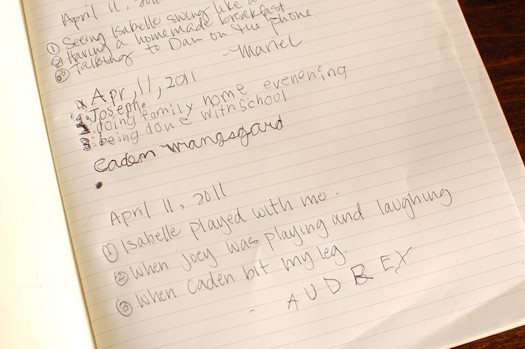 April 11, 2011
① Seeing Isabelle swing like a
② Having a homemade breakfast
③ Talking to Dan on the phone
- Manel
Apr, 11, 2011
1. Joseph.
2. doing family home evenening
3. being done with school
Caden Wrangsgard
April 11, 2011
① Isabelle played with me.
② When Joey was playing and laughing
③ When Caden bit my leg.
- AUDREY